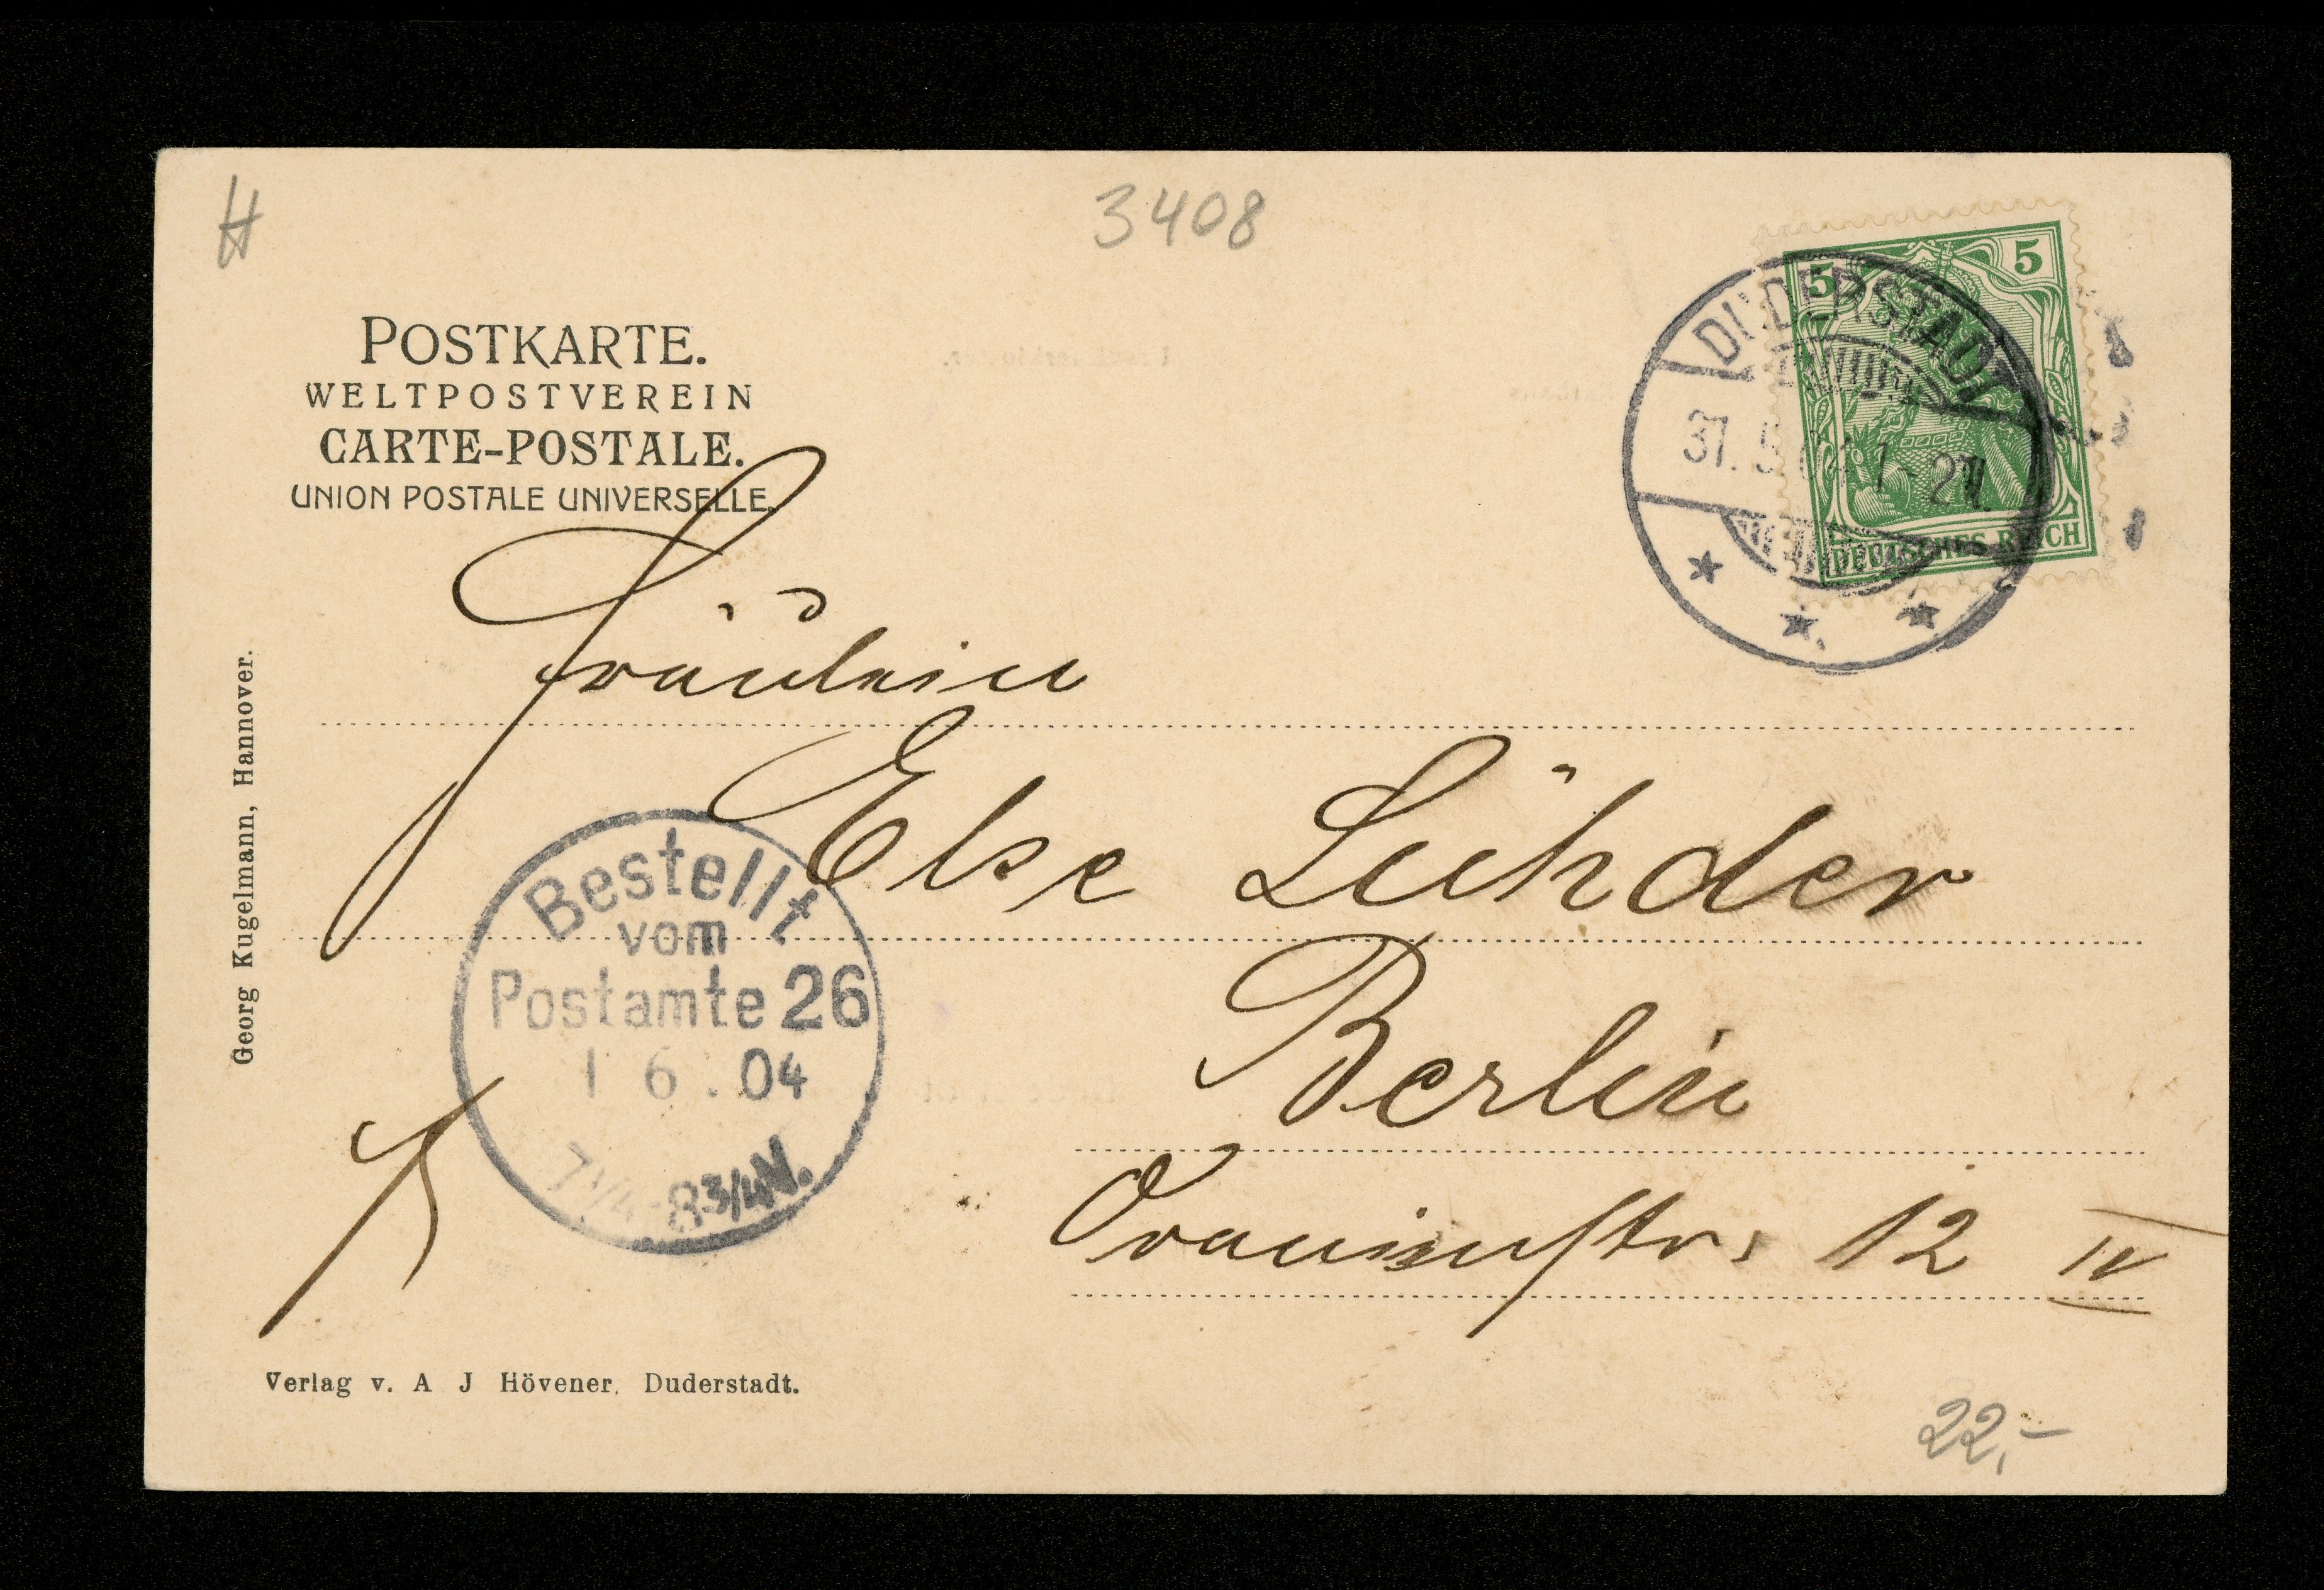 3408
POSTKARTE.
WELTPOSTVEREIN
CARTE-POSTALE.
UNION POSTALE UNIVERSELLE.
5 5
DEUTSCHES REICH
DUDERSTADT
31.5.04.1-2N.
Fräulein
Else Lühder
Berlin
Oranienstr. 12 IV
Bestellt
vom
Postamte 26
1 6.04
7¼-8¾N.
Georg Kugelmann, Hannover.
Verlag v. A J Hövener, Duderstadt.
22,-